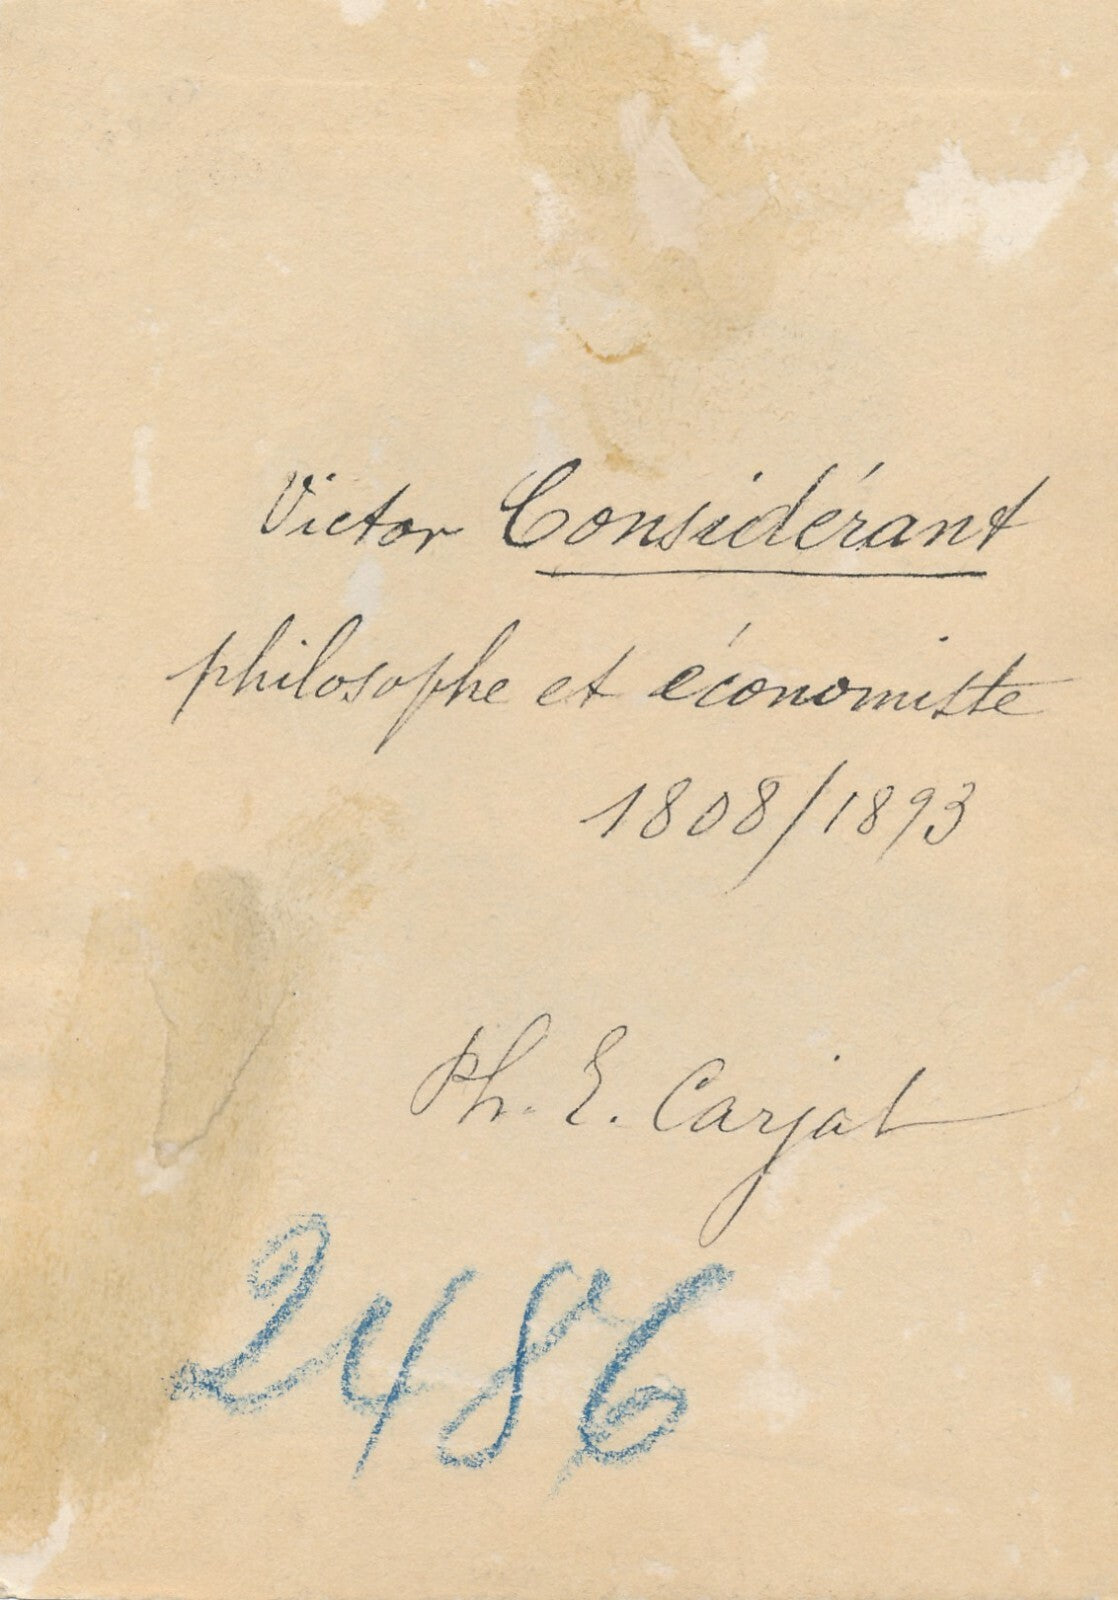 Victor Considérant
philosophe et économiste
1808/1893
Ph. E. Carjat
2486